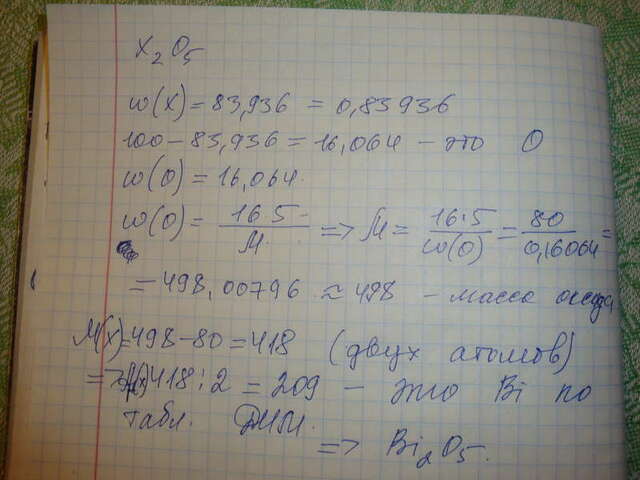 X₂O₅
w(X) = 83,936 = 0,83936
100 - 83,936 = 16,064 - это O
w(O) = 16,064.
w(O) = 16·5 / M. => M = 16·5 / w(O) = 80 / 0,16064 =
= 498,00796 ≈ 498 - масса оксида
M(X) = 498 - 80 = 418 (двух атомов)
=> 418 : 2 = 209 - это Bi по
табл. ДИМ.
=> Bi₂O₅.